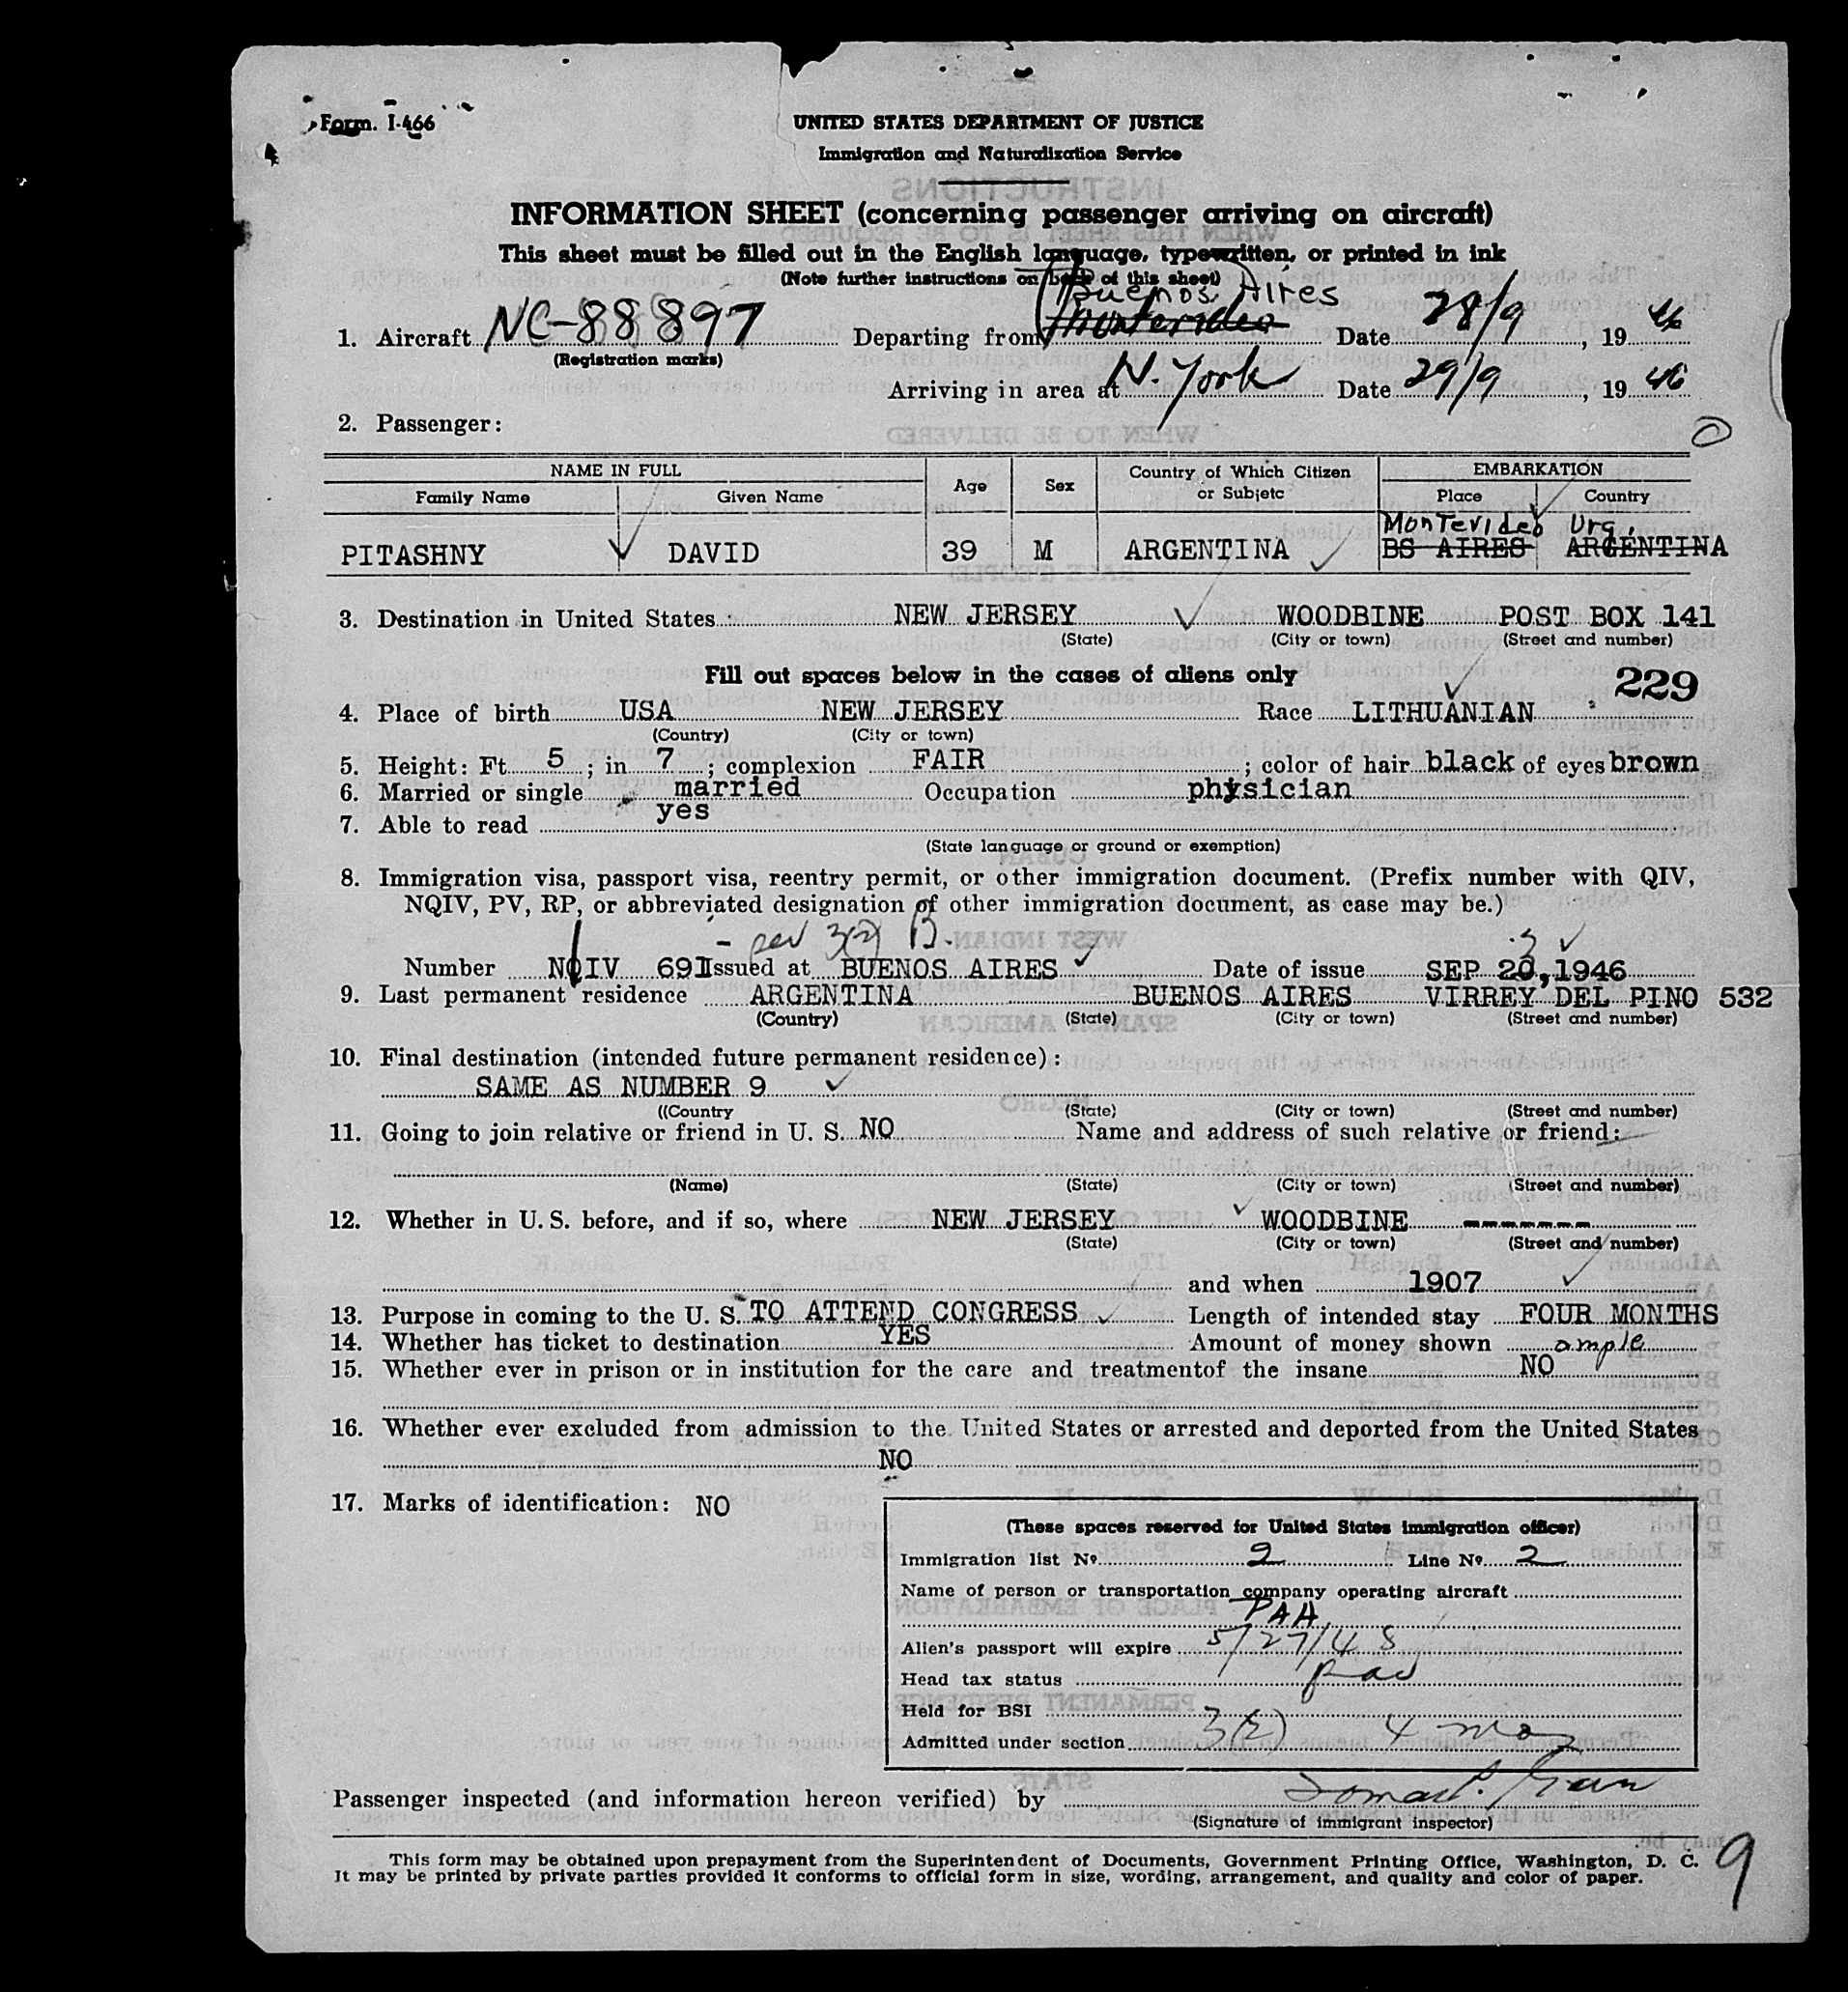 Form. I-466
UNITED STATES DEPARTMENT OF JUSTICE
Immigration and Naturalization Service
INFORMATION SHEET (concerning passenger arriving on aircraft)
This sheet must be filled out in the English language, typewritten, or printed in ink
(Note further instructions on back of this sheet)
Buenos Aires
1. Aircraft NC-88897 Departing from Montevideo Date 28/9, 19 46
(Registration marks)
Arriving in area at N. York Date 29/9, 19 46
2. Passenger:
NAME IN FULL Age Sex Country of Which Citizen or Subjetc EMBARKATION
Family Name Given Name Place Country
Montevideo Urg.
PITASHNY DAVID 39 M ARGENTINA BS AIRES ARGENTINA
3. Destination in United States NEW JERSEY WOODBINE POST BOX 141
(State) (City or town) (Street and number)
Fill out spaces below in the cases of aliens only
229
4. Place of birth USA NEW JERSEY Race LITHUANIAN
(Country) (City or town)
5. Height: Ft 5 ; in 7 ; complexion FAIR ; color of hair black of eyes brown
6. Married or single married Occupation physician
7. Able to read yes
(State language or ground or exemption)
8. Immigration visa, passport visa, reentry permit, or other immigration document. (Prefix number with QIV,
NQIV, PV, RP, or abbreviated designation of other immigration document, as case may be.)
3(2) B.
Number NQIV 691 Issued at BUENOS AIRES Date of issue SEP 20, 1946
9. Last permanent residence ARGENTINA BUENOS AIRES VIRREY DEL PINO 532
(Country) (State) (City or town) (Street and number)
10. Final destination (intended future permanent residence):
SAME AS NUMBER 9
((Country (State) (City or town) (Street and number)
11. Going to join relative or friend in U. S. NO Name and address of such relative or friend:
(Name) (State) (City or town) (Street and number)
12. Whether in U. S. before, and if so, where NEW JERSEY WOODBINE -------
(State) (City or town) (Street and number)
and when 1907
13. Purpose in coming to the U. S. TO ATTEND CONGRESS Length of intended stay FOUR MONTHS
14. Whether has ticket to destination YES Amount of money shown ample
15. Whether ever in prison or in institution for the care and treatmentof the insane NO
16. Whether ever excluded from admission to the United States or arrested and deported from the United States
NO
17. Marks of identification: NO
(These spaces reserved for United States immigration officer)
Immigration list No 2 Line No 2
Name of person or transportation company operating aircraft
PAA
Alien's passport will expire 5/27/48
Head tax status
Held for BSI
Admitted under section 3(2) 4 mos
Passenger inspected (and information hereon verified) by
(Signature of immigrant inspector)
This form may be obtained upon prepayment from the Superintendent of Documents, Government Printing Office, Washington, D. C.
It may be printed by private parties provided it conforms to official form in size, wording, arrangement, and quality and color of paper.
9